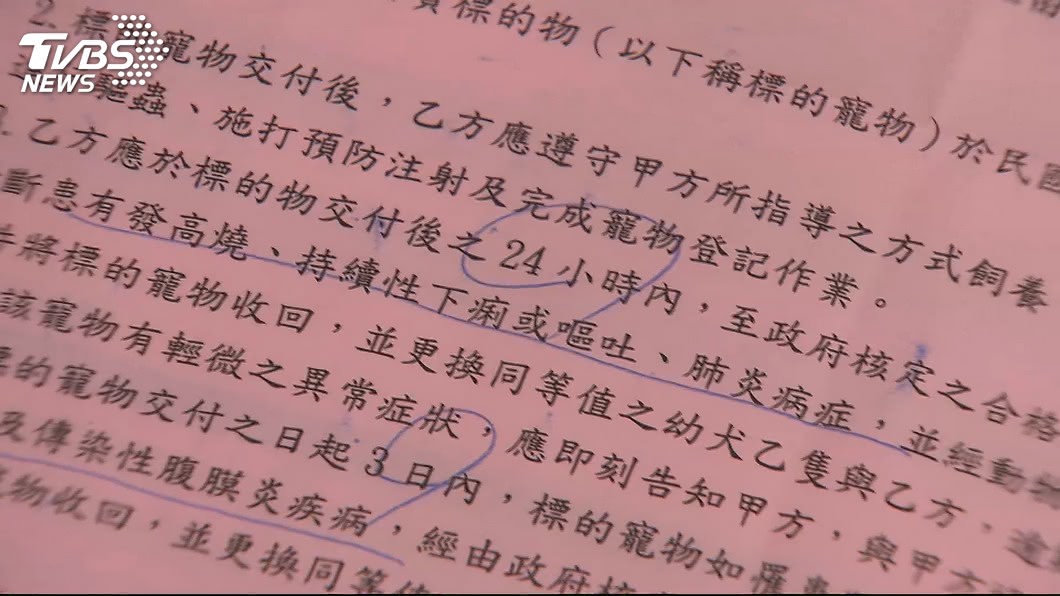 TVBS
NEWS
標的物（以下稱標的寵物）於民國
2. 標的寵物交付後，乙方應遵守甲方所指導之方式飼養
驅蟲、施打預防注射及完成寵物登記作業。
乙方應於標的物交付後之24小時內，至政府核定之合格
斷患有發高燒、持續性下痢或嘔吐、肺炎病症，並經動物
將標的寵物收回，並更換同等值之幼犬乙隻與乙方，逾
該寵物有輕微之異常症狀，應即刻告知甲方，與甲方
的寵物交付之日起3日內，標的寵物如罹患
及傳染性腹膜炎疾病，經由政府核
物收回，並更換同等值